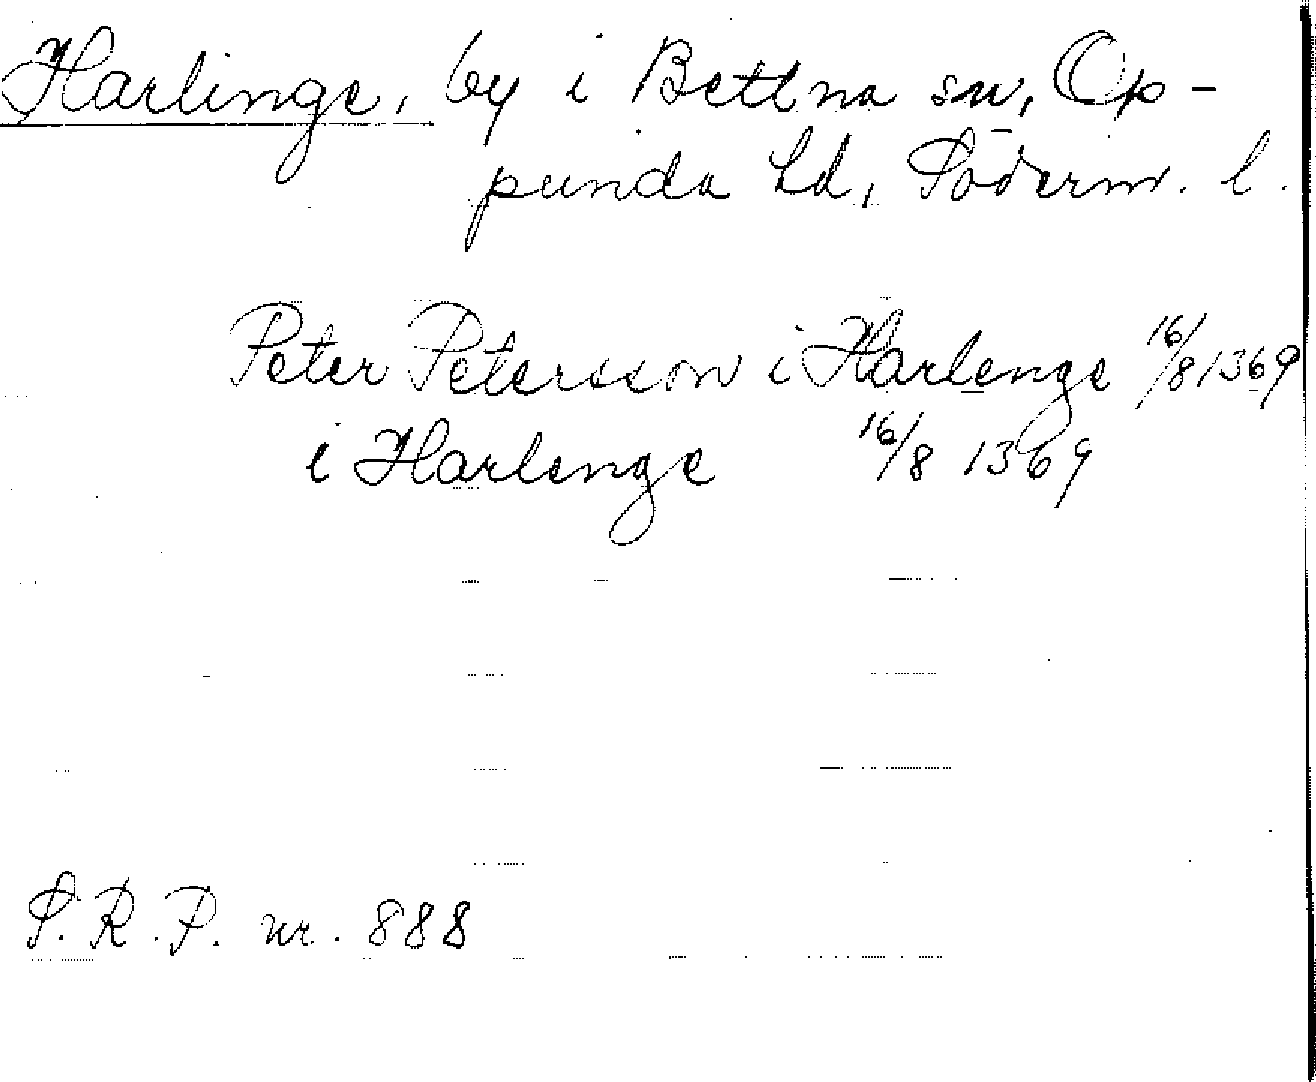 Harlinge, by i Bettna sn, Op-
punda hd, Söderm. l.
Peter Petersson i Harlenge 16/8 1369
i Harlenge 16/8 1369
S.R.P. nr. 888